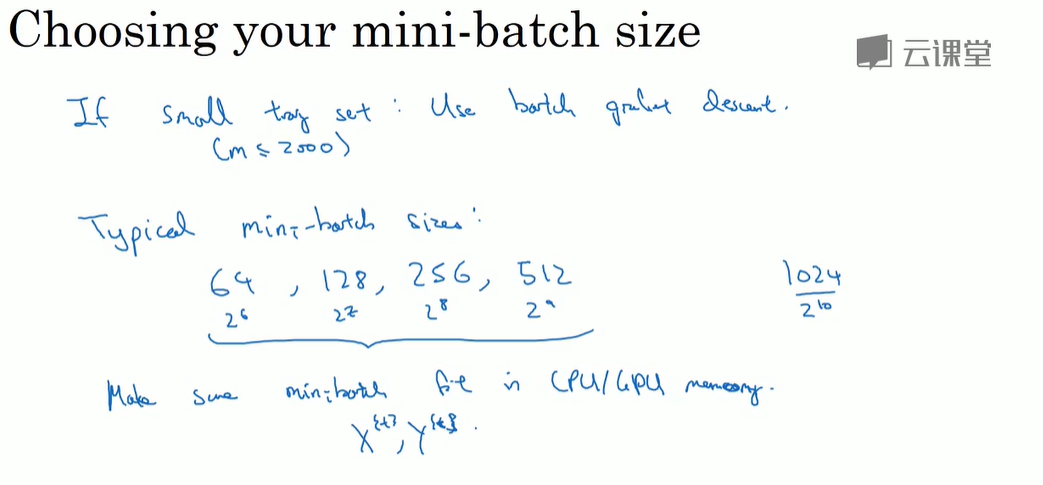 Choosing your mini-batch size
云课堂
If small trag set : Use batch gradient descent.
(m ≤ 2000)
Typical mini-batch sizes:
64, 128, 256, 512 1024
2^6 2^7 2^8 2^9 2^10
Make sure mini-batch fit in CPU/GPU memory.
X^{t}, Y^{t}.